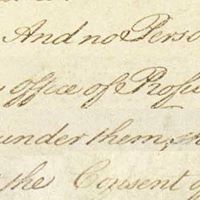 And no Perso
office of Profi
under them, sh
the Consent of